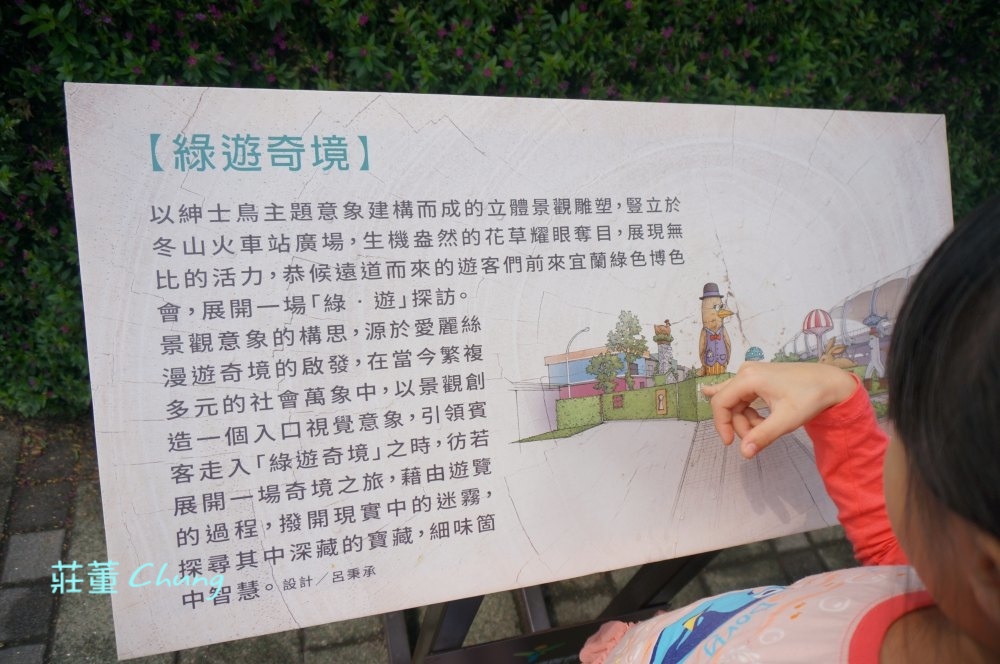 【綠遊奇境】
以紳士鳥主題意象建構而成的立體景觀雕塑，豎立於
冬山火車站廣場，生機盎然的花草耀眼奪目，展現無
比的活力，恭候遠道而來的遊客們前來宜蘭綠色博色
會，展開一場「綠‧遊」探訪。
景觀意象的構思，源於愛麗絲
漫遊奇境的啟發，在當今繁複
多元的社會萬象中，以景觀創
造一個入口視覺意象，引領賓
客走入「綠遊奇境」之時，彷若
展開一場奇境之旅，藉由遊覽
的過程，撥開現實中的迷霧，
探尋其中深藏的寶藏，細味箇
中智慧。設計／呂秉承
莊董 Chung